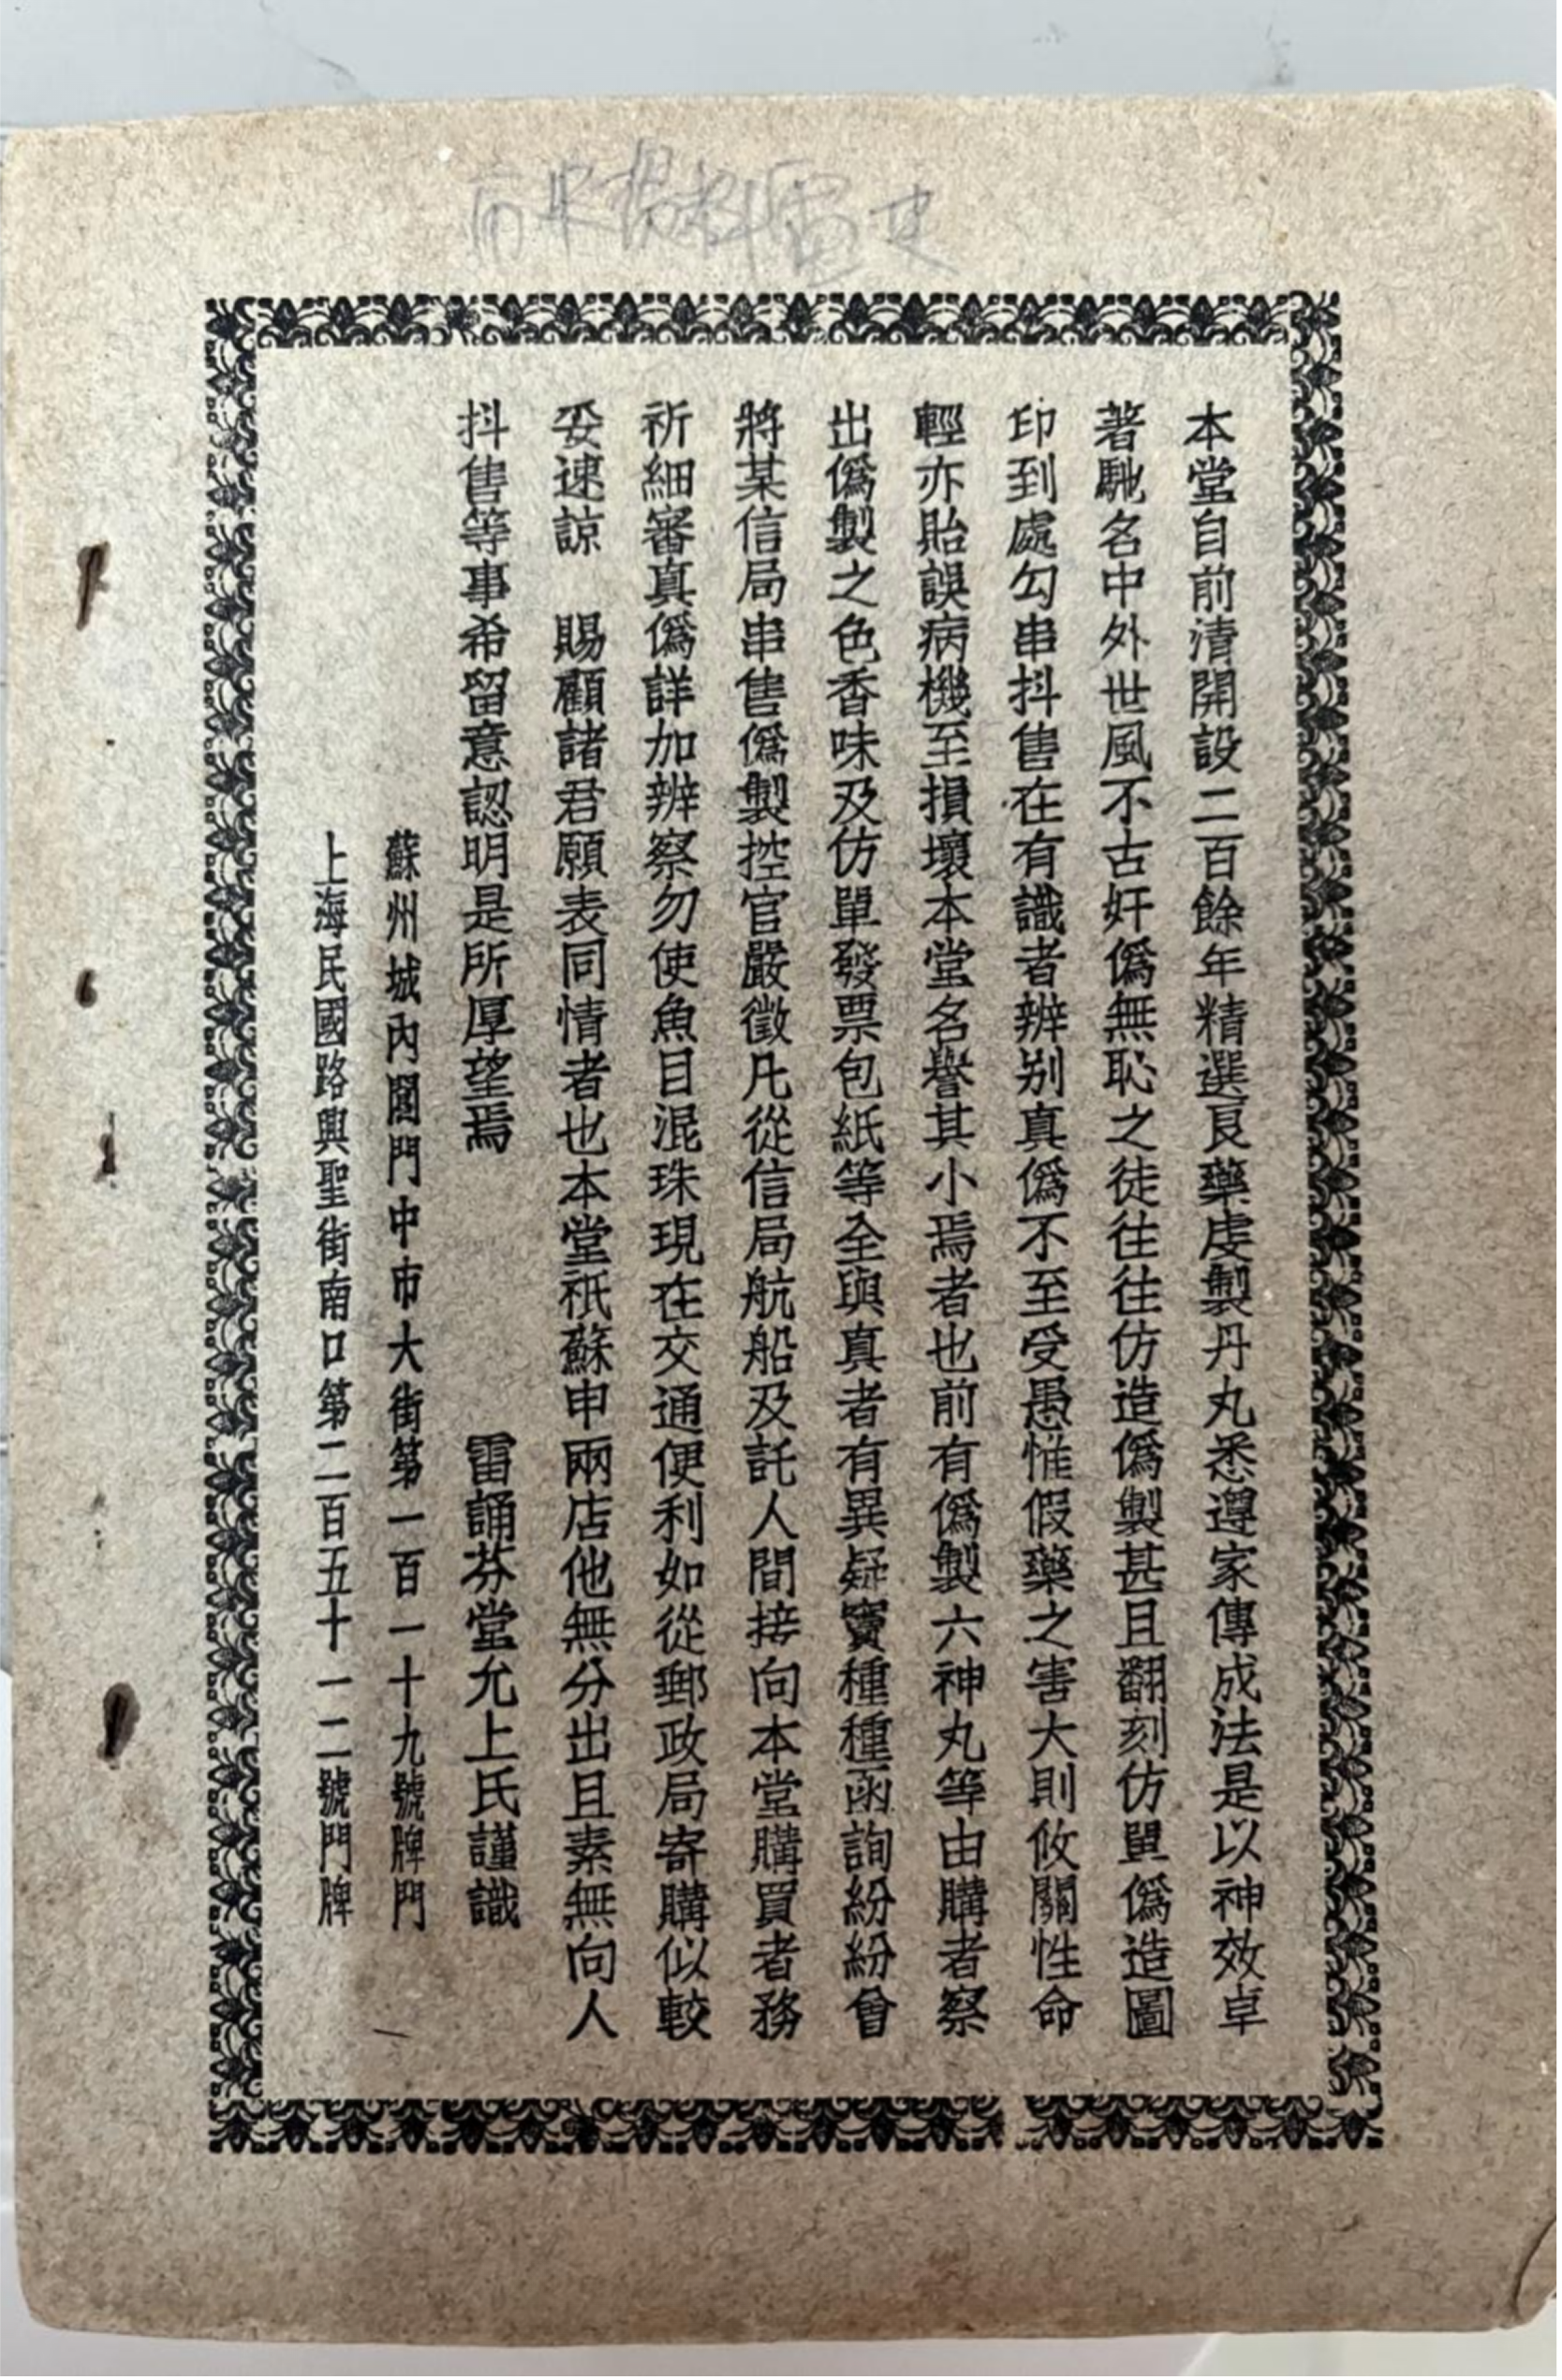 本堂自前清開設二百餘年精選良藥虔製丹丸悉遵家傳成法是以神效卓
著馳名中外世風不古奸僞無恥之徒往往仿造僞製甚且翻刻仿單僞造圖
印到處勾串抖售在有識者辨别真僞不至受愚惟假藥之害大則攸關性命
輕亦貽誤病機至損壞本堂名譽其小焉者也前有僞製六神丸等由購者察
出僞製之色香味及仿單發票包紙等全與真者有異疑竇種種函詢紛紛曾
將某信局串售僞製控官嚴徵凡從信局航船及託人間接向本堂購買者務
祈細審真僞詳加辨察勿使魚目混珠現在交通便利如從郵政局寄購似較
妥速諒　賜顧諸君願表同情者也本堂祇蘇申兩店他無分出且素無向人
抖售等事希留意認明是所厚望焉　　　　　雷誦芬堂允上氏謹識
蘇州城內閶門中市大街第一百一十九號牌門
上海民國路興聖街南口第二百五十一二號門牌